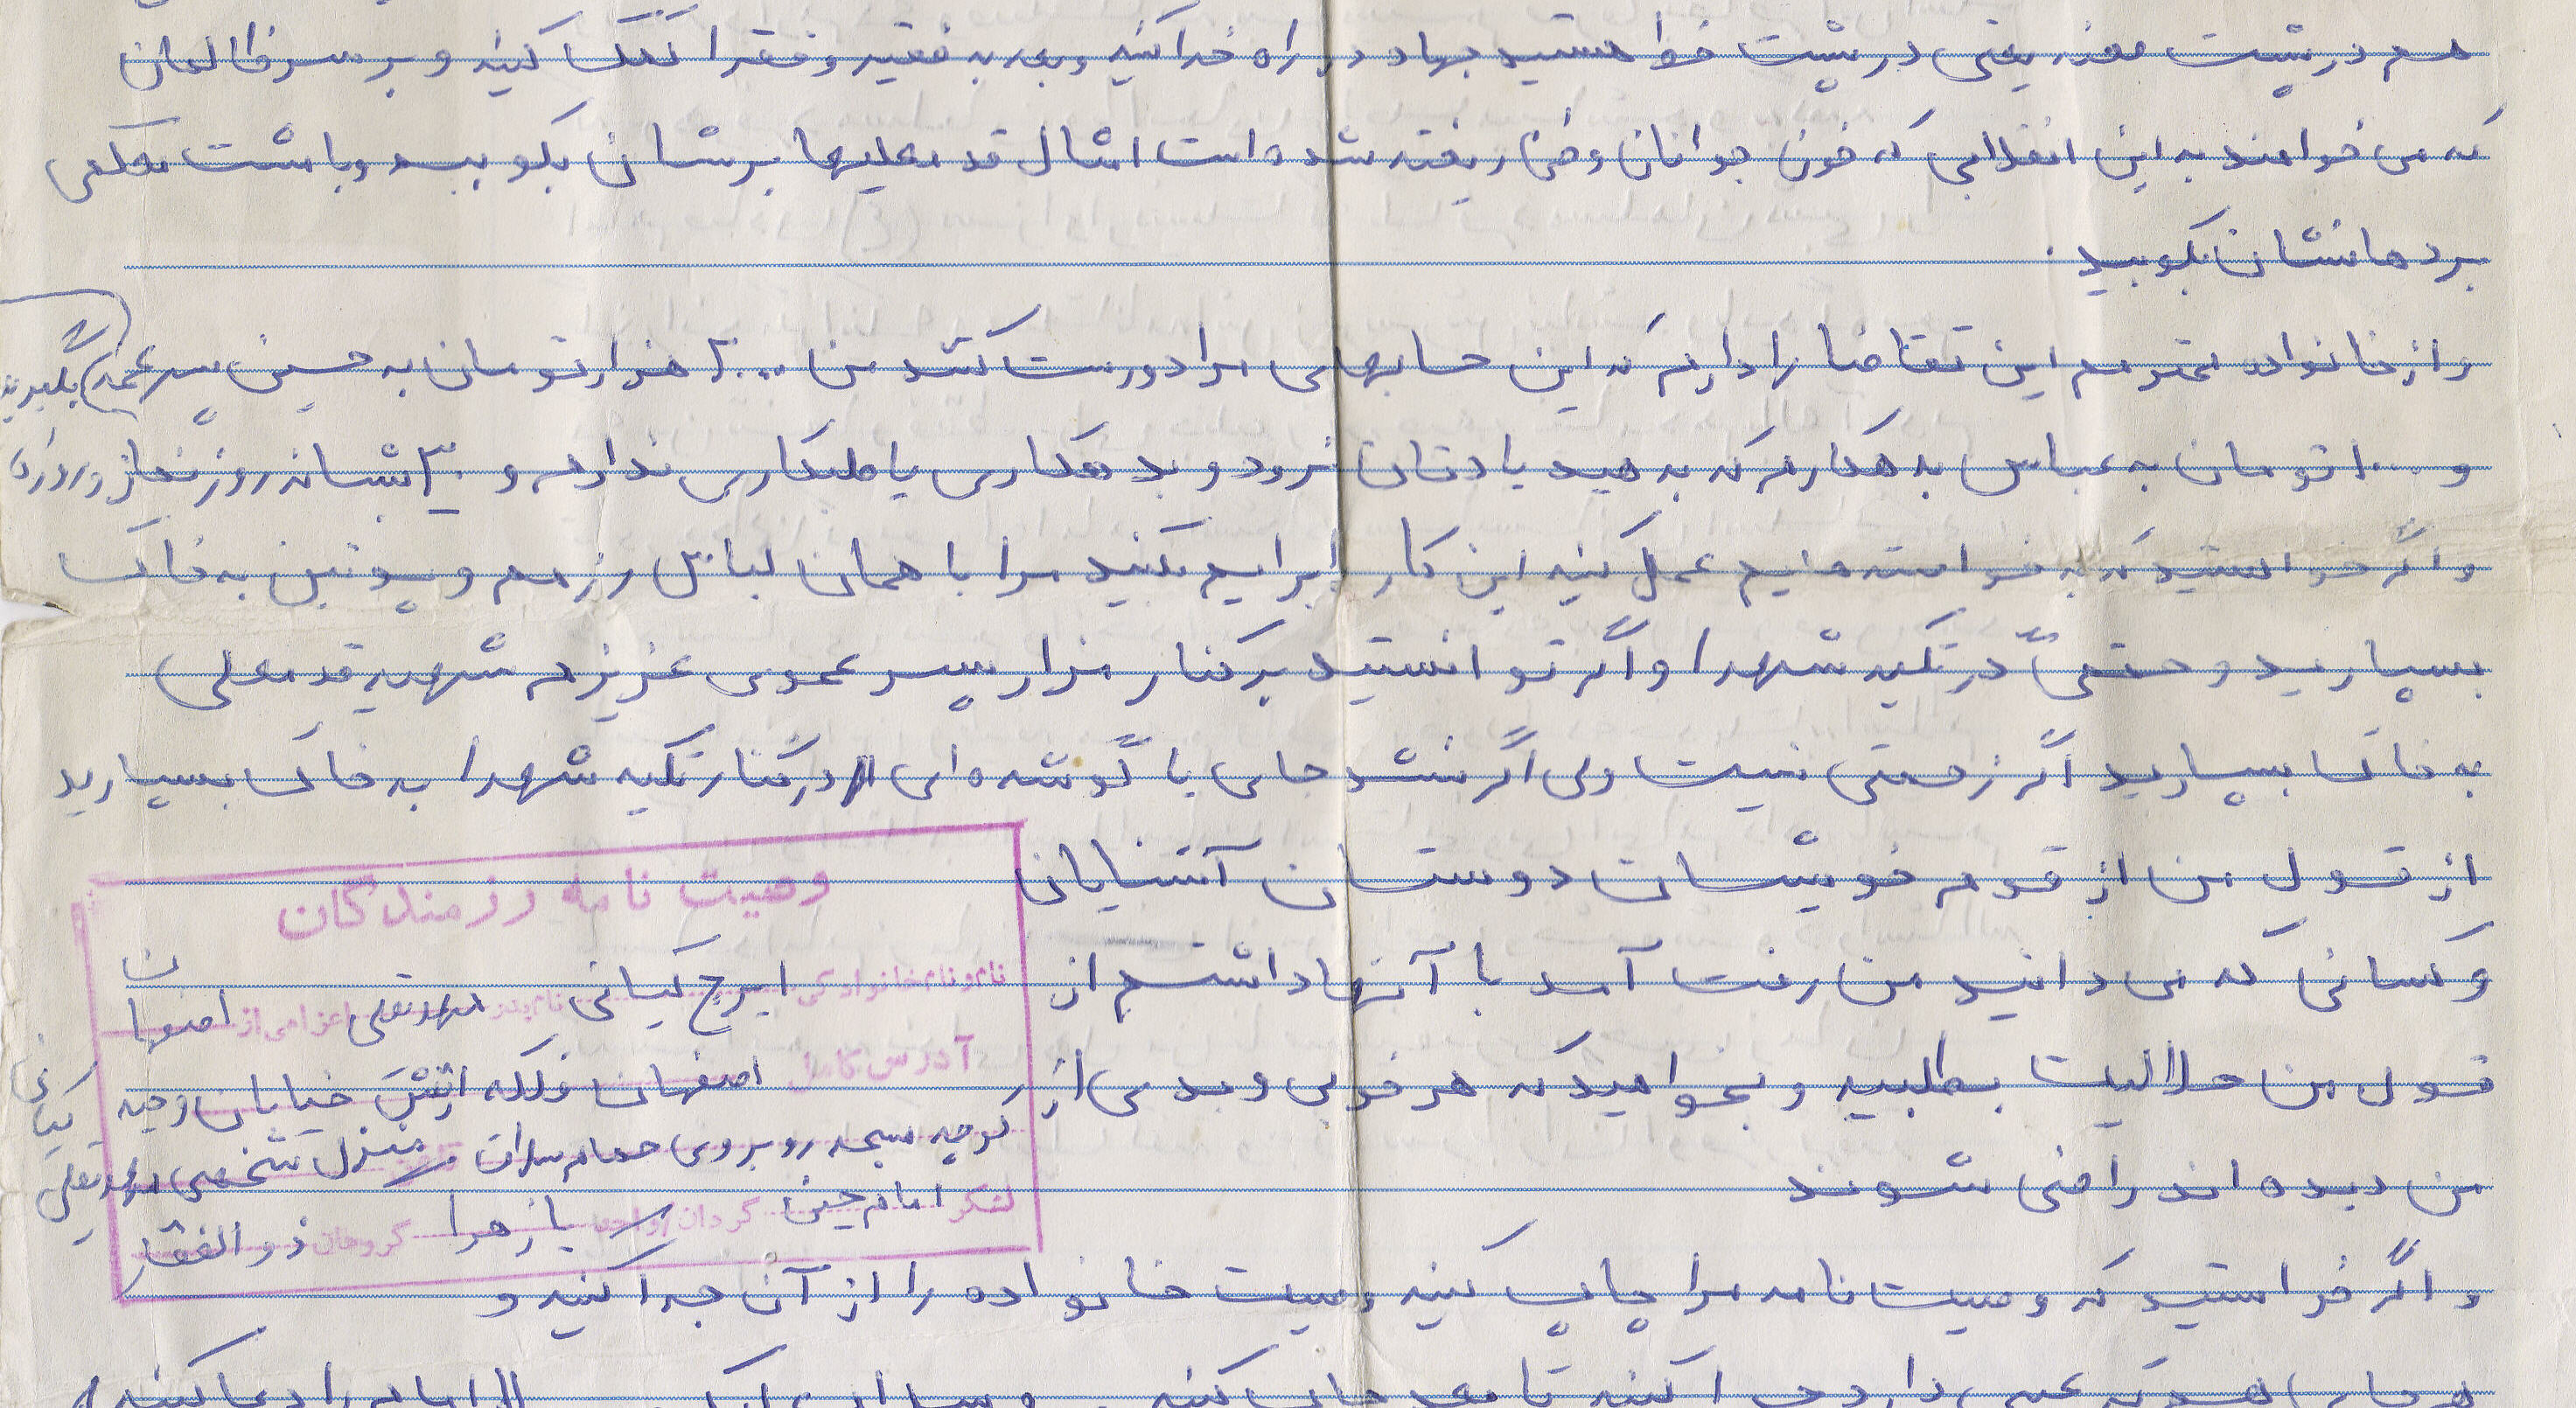 هم در پشت جبهه یعنی در پشت خط هستید جهاد در راه خدا کنید و بعد به فقیر و فقرا کمک کنید و بر سر ظالمان
که می خواهند به این انقلابی که خون جوانان وطن ریخته شده است امثال قدمعلیها برشان بکوبید و با مشت محکمی
بر دهانشان بکوبید.
و از خانواده محترمم این تقاضا را دارم که این حسابهای مرا دورست کنند من ۲۰۰۰ هزار تومان به حسین پسر عمه بگیرید
و ۱۰۰۰ تومان به عباس بدهکارم که بدهید یادتان نرود و بدهکاری یا طلبکاری ندارم و ۲۰ شبانه روز نماز و روزه
و اگر خواستید که به خواسته هایم عمل کنید این کار را برایم بکنید مرا با همان لباس رزمم و پوتین به خاک
بسپارید و حتمیً در تکیه شهدا و اگر توانستید بر کنار مزار پسر عموی عزیزم شهید قدمعلی
به خاک بسپارید اگر زحمتی نیست ولی اگر نشد جای یا گوشه ای در کنار تکیه شهدا به خاک بسپارید
از قول من از قوم خویشان دوستان آشنایان
و کسانی که می دانید من رفت آمد با آنها داشتم از
قول من حلالیت بطلبید و بخواهید که هر خوبی و بدی از
من دیده اند راضی شوند
وصیت نامه رزمندگان
نام و نام خانوادگی ایرج کیانی نام پدر مهدیقلی اعزامی از اصفهان
آدرس کامل اصفهان فلکه ارتش خیابان وحید
کوچه مسجد روبروی حمام سادات منزل شخصی مهدیقلی کیانی
لشکر امام حسین گردان/واحد یا زهرا گروهان ذوالفقار
و اگر خواستید که وصیت نامه مرا چاپ کنید وصیت خانواده را از آن جدا کنید و